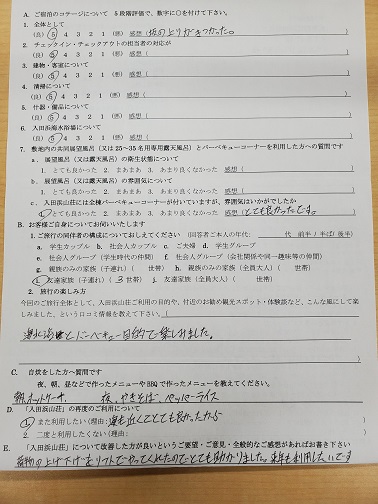 A. ご宿泊のコテージについて 5段階評価で、数字に○を付けて下さい。
1. 全体として
(良) 5 4 3 2 1 (悪) 感想( 坂の上りがきつかった。 )
2. チェックイン・チェックアウトの担当者の対応が
(良) 5 4 3 2 1 (悪) 感想( )
3. 建物・客室について
(良) 5 4 3 2 1 (悪) 感想( )
4. 清掃について
(良) 5 4 3 2 1 (悪) 感想( )
5. 什器・備品について
(良) 5 4 3 2 1 (悪) 感想( )
6. 入田浜海水浴場について
(良) 5 4 3 2 1 (悪) 感想( )
7. 敷地内の共同展望風呂(又は25~35名用専用露天風呂)とバーベキューコーナーを利用した方への質問です
a. 展望風呂(又は露天風呂)の衛生状態について
1. とても良かった 2. まあまあ 3. あまり良くなかった 感想( )
b. 展望風呂(又は露天風呂)の雰囲気について
1. とても良かった 2. まあまあ 3. あまり良くなかった 感想( )
c. 入田浜山荘には全棟バーベキューコーナーが付いていますが、雰囲気はいかがでしたか
1. とても良かった 2. まあまあ 3. あまり良くなかった 感想( とても良かったです。 )
B. お客様ご自身についてお伺いいたします
1. ご旅行の同伴者の構成についておしえてください (回答者ご本人の年代: 代 前半/半ば/後半)
a. 学生カップル b. 社会人カップル c. ご夫婦 d. 学生グループ
e. 社会人グループ(学生時代の仲間) f. 社会人グループ(会社関係や同一趣味等の仲間)
g. 親族のみの家族(子連れ)( 世帯) h. 親族のみの家族(全員大人)( 世帯)
i. 友達家族(子連れ)( 3 世帯) j. 友達家族(全員大人)( 世帯)
2. 旅行の楽しみ方
今回のご旅行全体として、入田浜山荘ご利用の目的や、付近のお勧め観光スポット・体験談など、こんな風にして楽しみました、という口コミ情報を教えて下さい。
海水浴とバーベキュー目的で楽しみました。
C. 自炊をした方へ質問です
夜、朝、昼などで作ったメニューやBBQで作ったメニューを教えてください。
朝、ホットケーキ、 夜、やきそば、ペッパーライス
D. 「入田浜山荘」の再度のご利用について
1. また利用したい(理由: 海も近くてとても良かったから
2. 二度と利用したくない(理由:
E. 「入田浜山荘」について改善した方が良いというご要望・ご意見・全般的なご感想があればお書き下さい
荷物の上げ下げをリフトでやってくれたのでとても助かりました。来年も利用したいです